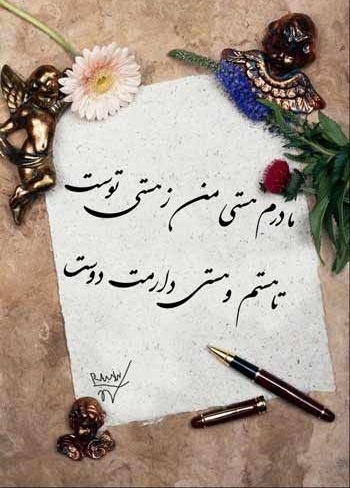 مادرم هستی من ز هستی توست
تا هستم و هستی دارمت دوست